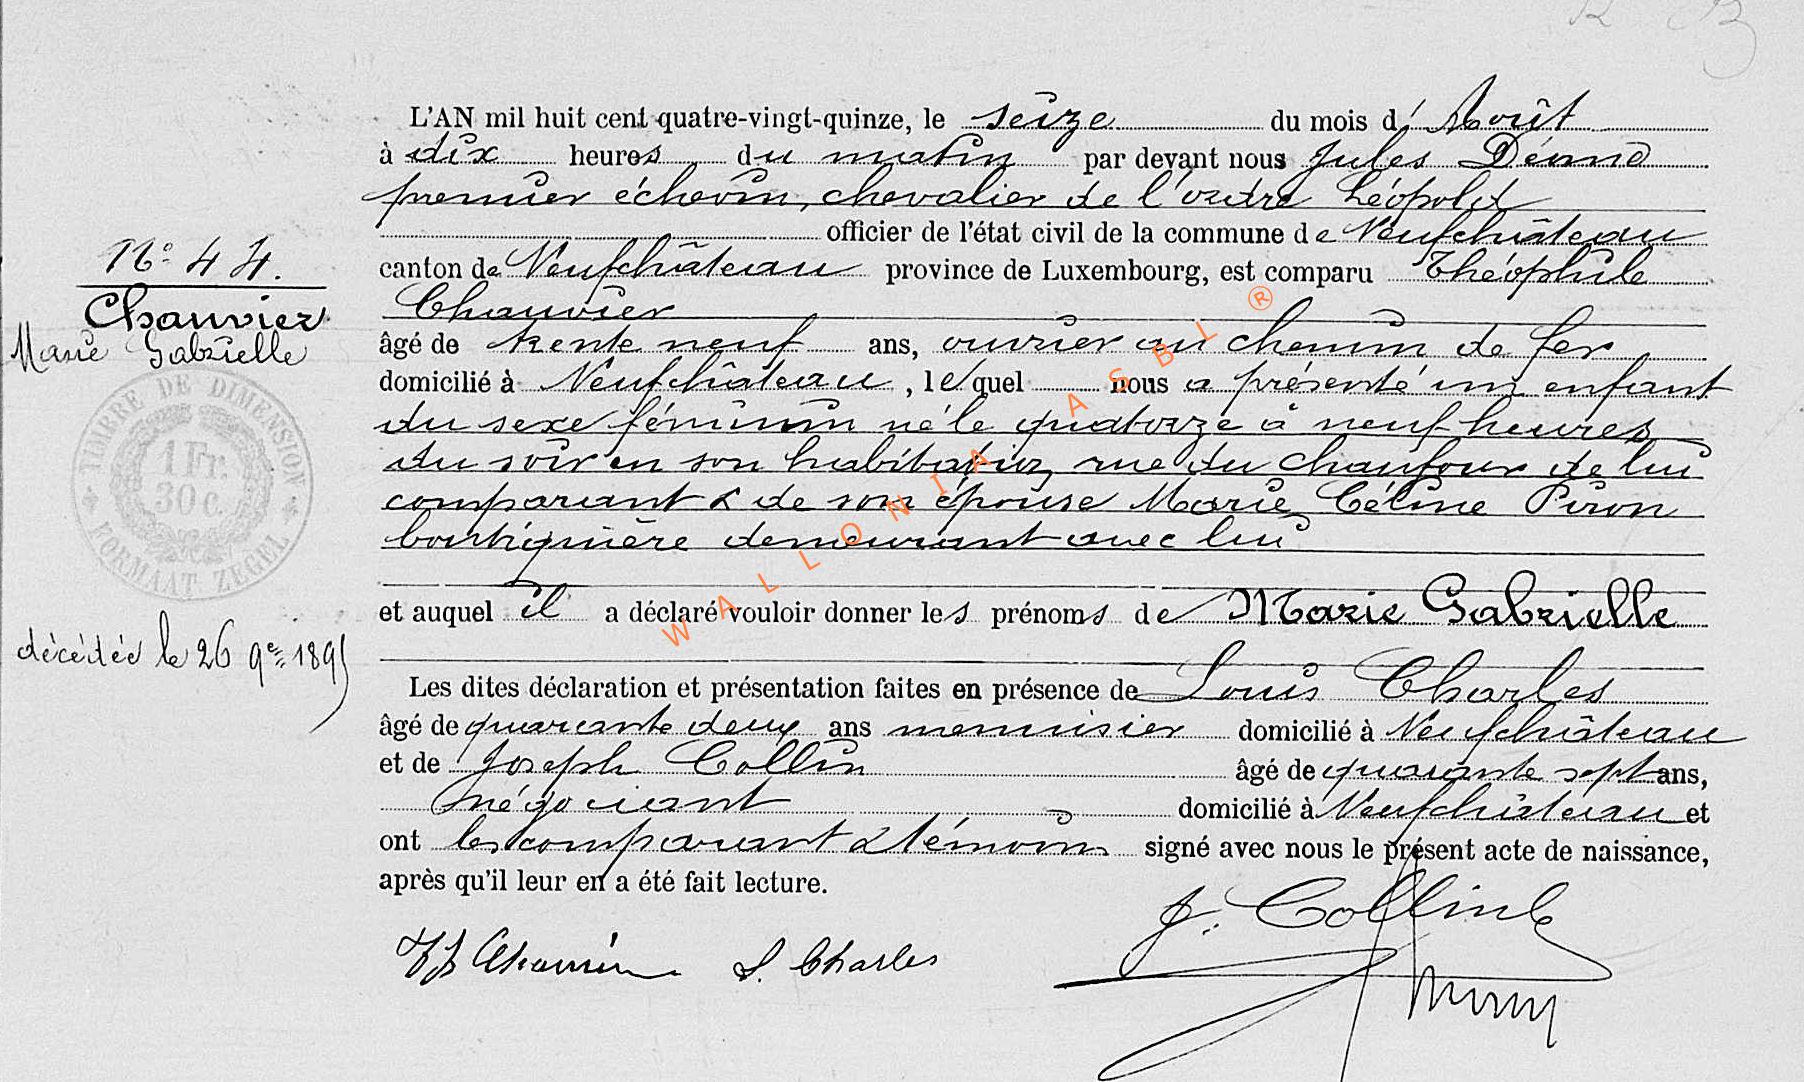 L'AN mil huit cent quatre-vingt-quinze, le seize du mois d'Août
à dix heures du matin par devant nous Jules
premier échevin, chevalier de l'ordre Léopold
officier de l'état civil de la commune de Neufchâteau
N° 44.
canton de Neufchâteau province de Luxembourg, est comparu Théophile
Chauvier
Chauvier
Marie Gabrielle
âgé de trente neuf ans, ouvrier au chemin de fer
domicilié à Neufchâteau, lequel nous a présenté un enfant
du sexe féminin né le quatorze à neuf heures
du soir en son habitation, rue du Chaufour de lui
comparant & de son épouse Marie Céline Piron
boutiquière demeurant avec lui
TIMBRE DE DIMENSION
1 Fr.
30 c.
FORMAAT ZEGEL
et auquel il a déclaré vouloir donner les prénoms de Marie Gabrielle
décédée le 26 9re 1895
Les dites déclaration et présentation faites en présence de Louis Charles
âgé de quarante deux ans menuisier domicilié à Neufchâteau
et de Joseph Collin âgé de quarante sept ans,
négociant domicilié à Neufchâteau et
ont les comparant & témoins signé avec nous le présent acte de naissance,
après qu'il leur en a été fait lecture.
Chauvier L. Charles J. Collin
WALLONIA ASBL ®